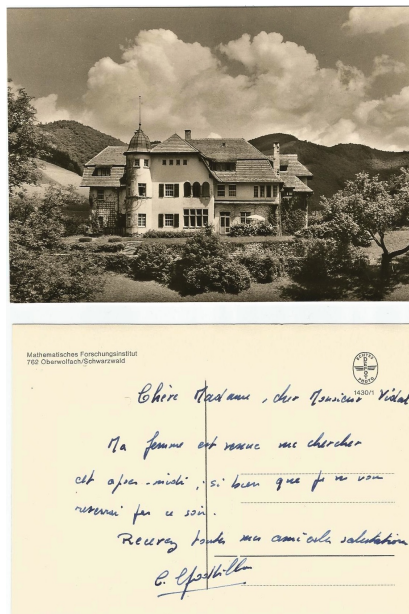 Mathematisches Forschungsinstitut
762 Oberwolfach/Schwarzwald
ECHTES
PHOTO
1430/1
Chère Madame, cher Monsieur Vidal
Ma femme est venue me chercher
cet après-midi, si bien que je ne vous
reverrai pas ce soir.
Recevez toutes mes amicales salutations
C.